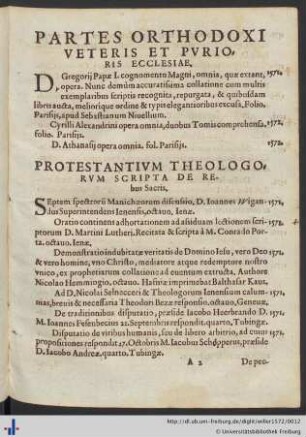 PARTES ORTHODOXI
VETERIS ET PVRIO-
RIS ECCLESIAE.
D. Gregorij Papæ I. cognomento Magni, omnia, quæ extant, 1571.
opera. Nunc demùm accuratissima collatione cum multis
exemplaribus scriptis recognita, repurgata, & quibusdam
libris aucta, meliorique ordine & typis elegantioribus excusa, Folio.
Parisijs, apud Sebastianum Niuellium.
Cyrilli Alexandrini opera omnia, duobus Tomis comprehensa, 1572.
folio. Parisijs.
D. Athanasij opera omnia. fol. Parisijs. 1572.
PROTESTANTIVM THEOLOGO-
RVM SCRIPTA DE RE-
bus Sacris,
Septem spectrorū Manichæorum disensio, D. Ioannes Wigan- 1571,
dus Superintendens Ienensis, octauo, Ienæ.
Oratio continens adhortationem ad assiduam lectionem scri- 1571,
ptorum D. Martini Lutheri. Recitata & scripta à M. Conrado Por
ta. octauo. Ienæ,
Demonstratio indubitatæ veritatis de Domino Iesu, vero Deo 1571,
& vero homine, vno Christo, mediatore atque redemptore nostro
vnico, ex prophetiarum collatione ad euentum extructa, Authore
Nicolao Hemmingio, octauo. Hafniæ imprimebat Balthasar Kaus.
Ad D. Nicolai Selnecceri & Theologorum Ienensium calum- 1571,
nias, breuis & necessaria Theodori Bezæ responsio, octauo, Geneuæ,
De traditionibus disputatio, præside Iacobo Heerbrando D. 1571,
M. Ioannes Fesenbecius 21. Septembris respondit. quarto, Tubingæ.
Disputatio de viribus humanis, seu de libero arbitrio, ad cuius 1571,
propositiones respondit 27. Octobris M. Iacobus Schopperus, præside
D. Iacobo Andreæ, quarto, Tubingæ.
A 2 De pec-
http://dl.ub.uni-freiburg.de/diglit/willer1572/0012
© Universitätsbibliothek Freiburg